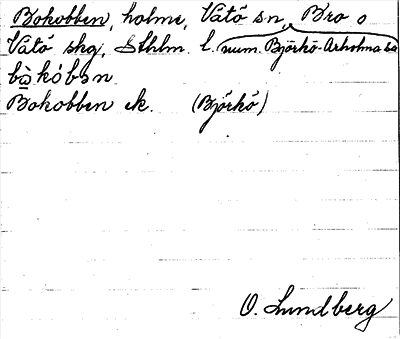 Bokobben, holme, Vätö sn, Bro o
Vätö skg, Sthlm l. num. Björkö-Arholma sn
bò̀kóbən
Bokobben ek. (Björkö)
O. Lundberg